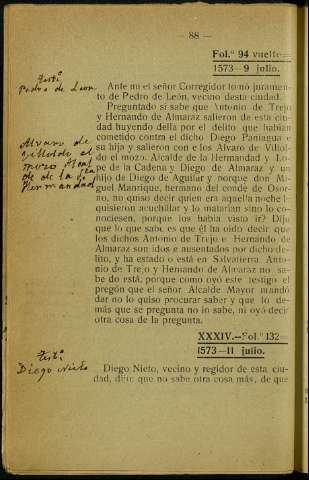 — 88 —
Fol.º 94 vuelto
1573—9 julio.
testº
Pedro de Leon
Ante mi el señor Corregidor tomó juramen-
to de Pedro de León, vecino desta ciudad.
Preguntado si sabe que Antonio de Trejo
y Hernando de Almaraz salieron de esta ciu-
dad huyendo della por el delito que habían
cometido contra el dicho Diego Paniagua e
su hija y salieron con e los Alvaro de Villol-
do el mozo, Alcalde de la Hermandad y Lo-
pe de la Cadena y Diego de Almaraz y un
hijo de Diego de Aguilar y porque don Mi-
guel Manrique, hermano del conde de Osor-
no, no quiso decir quien era aquella noche l
quisieron acuchillar y lo mataran sino lo co-
nociesen, porque los había visto ir? Dijo
que lo que sabe es que él ha oido decir que
los dichos Antonio de Trejo e Hernando de
Almaraz son idos e ausentados por dicho de-
lito, y ha estado o está en Salvatierra Anto-
nio de Trejo y Hernando de Almaraz no sa-
be do está, porque como oyó este testigo el
pregón que el señor Alcalde Mayor mandó
dar no lo quiso procurar saber y que lo de-
más que se pregunta no lo sabe, ni oyó decir
otra cosa de la pregunta.
Alvaro de
Villoldo el
mozo
de de la
Hermandad
XXXIV.—Fol.º 132
1573—11 julio.
testº
Diego Nieto
Diego Nieto, vecino y regidor de esta ciu-
dad, dijo: que no sabe otra cosa más, de que